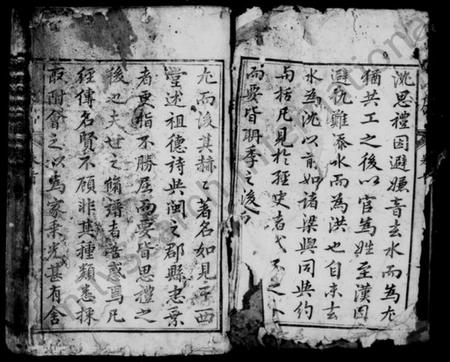 沈思禮因避嫌音去水而為尤
猶共工之後以官為姓至漢因
避仇難添水而為洪也自未去
水為沈以前如諸梁與同與約
與括凡見於經史者
而要皆聃季之後
尤而後其赫赫著名如見于西
堂述祖德詩與閩之郡縣志乘
者更指不勝屈而要皆思禮之
後也夫世之脩譜者吾惑焉凡
經傳名賢不顧非其種類悉採
取附會之以為家乘光甚有舍